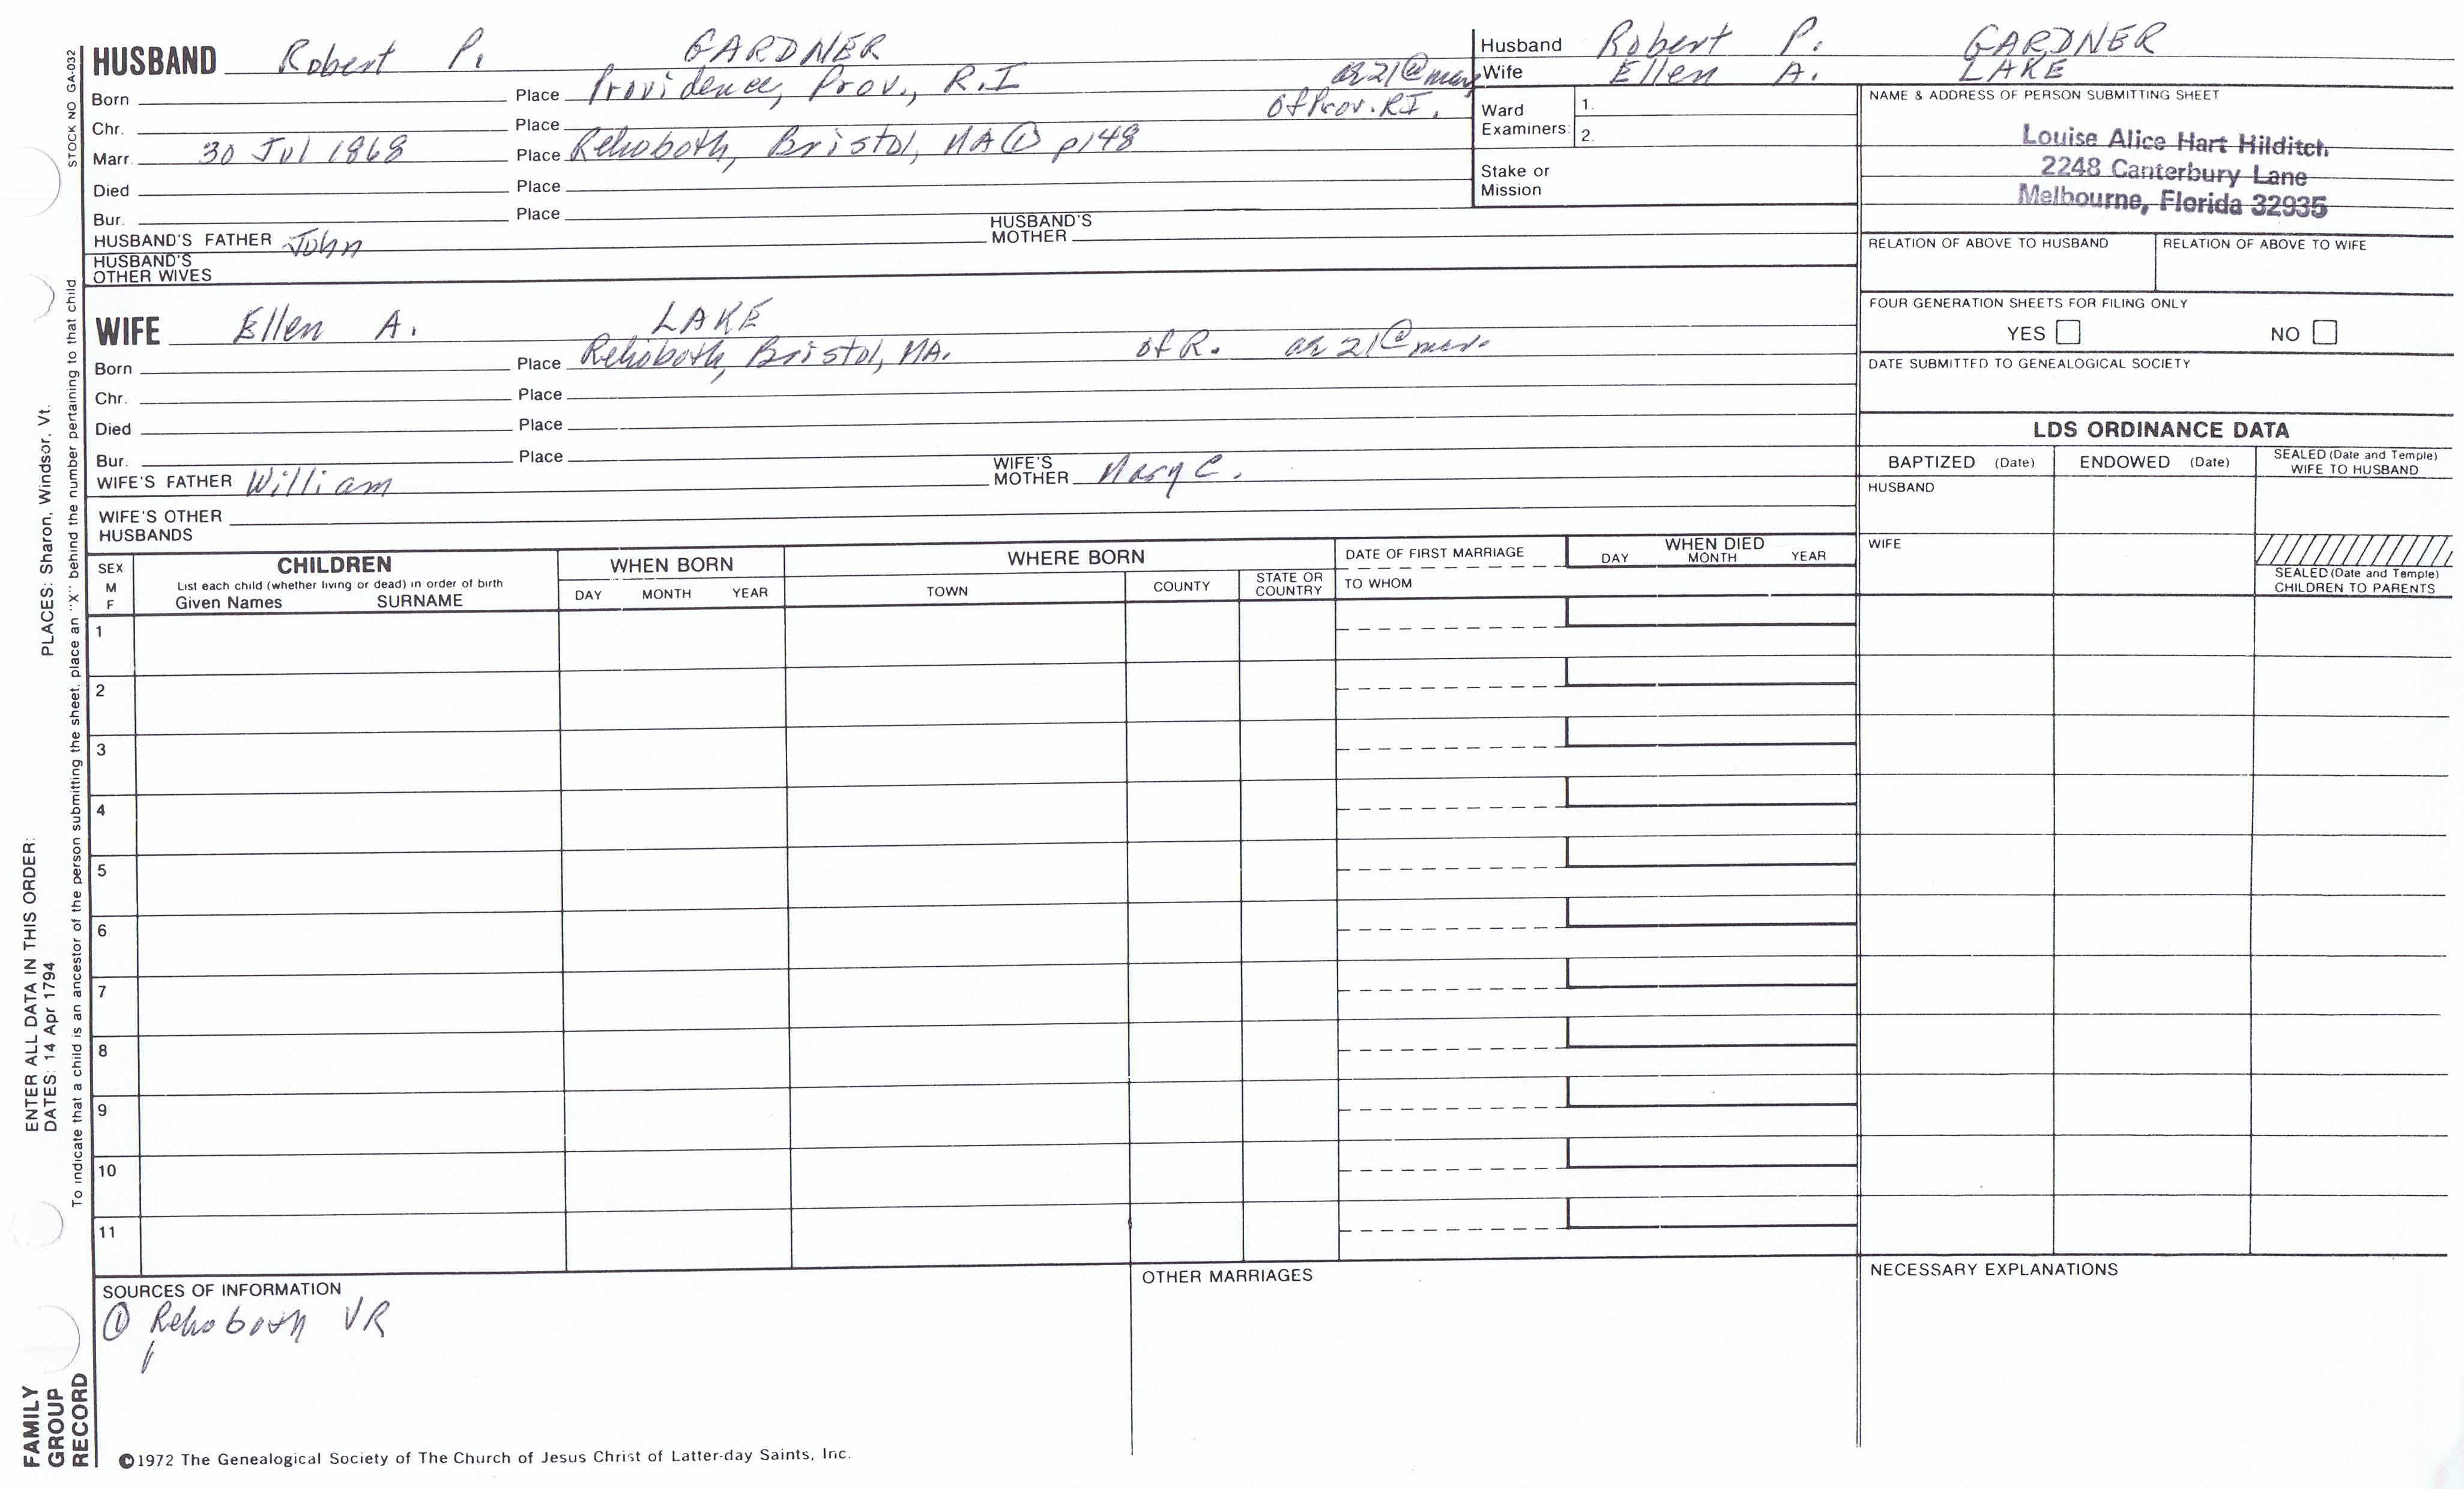 STOCK NO GA-032
HUSBAND Robert P. GARDNER
Born Place Providence, Prov., R.I ae 21@mar
Chr. Place Of Prov. R.I.
Marr. 30 Jul 1868 Place Rehoboth, Bristol, MA ① p148
Died Place
Bur. Place
HUSBAND'S FATHER John HUSBAND'S MOTHER
HUSBAND'S OTHER WIVES
Husband Robert P. GARDNER
Wife Ellen A. LAKE
Ward Examiners: 1.
2.
Stake or Mission
NAME & ADDRESS OF PERSON SUBMITTING SHEET
Louise Alice Hart Hilditch
2248 Canterbury Lane
Melbourne, Florida 32935
RELATION OF ABOVE TO HUSBAND RELATION OF ABOVE TO WIFE
FOUR GENERATION SHEETS FOR FILING ONLY
YES NO
DATE SUBMITTED TO GENEALOGICAL SOCIETY
WIFE Ellen A. LAKE
Born Place Rehoboth, Bristol, MA. of R. ae 21@mar.
Chr. Place
Died Place
Bur. Place
WIFE'S FATHER William WIFE'S MOTHER Mary C.
WIFE'S OTHER HUSBANDS
LDS ORDINANCE DATA
BAPTIZED (Date) ENDOWED (Date) SEALED (Date and Temple) WIFE TO HUSBAND
HUSBAND
WIFE
SEALED (Date and Temple) CHILDREN TO PARENTS
SEX M F
CHILDREN
List each child (whether living or dead) in order of birth
Given Names SURNAME
WHEN BORN
DAY MONTH YEAR
WHERE BORN
TOWN COUNTY STATE OR COUNTRY
DATE OF FIRST MARRIAGE
TO WHOM
WHEN DIED
DAY MONTH YEAR
1
2
3
4
5
6
7
8
9
10
11
SOURCES OF INFORMATION
① Rehoboth VR
OTHER MARRIAGES
NECESSARY EXPLANATIONS
©1972 The Genealogical Society of The Church of Jesus Christ of Latter-day Saints, Inc.
FAMILY GROUP RECORD
ENTER ALL DATA IN THIS ORDER:
DATES: 14 Apr 1794
PLACES: Sharon, Windsor, Vt.
To indicate that a child is an ancestor of the person submitting the sheet, place an "X" behind the number pertaining to that child